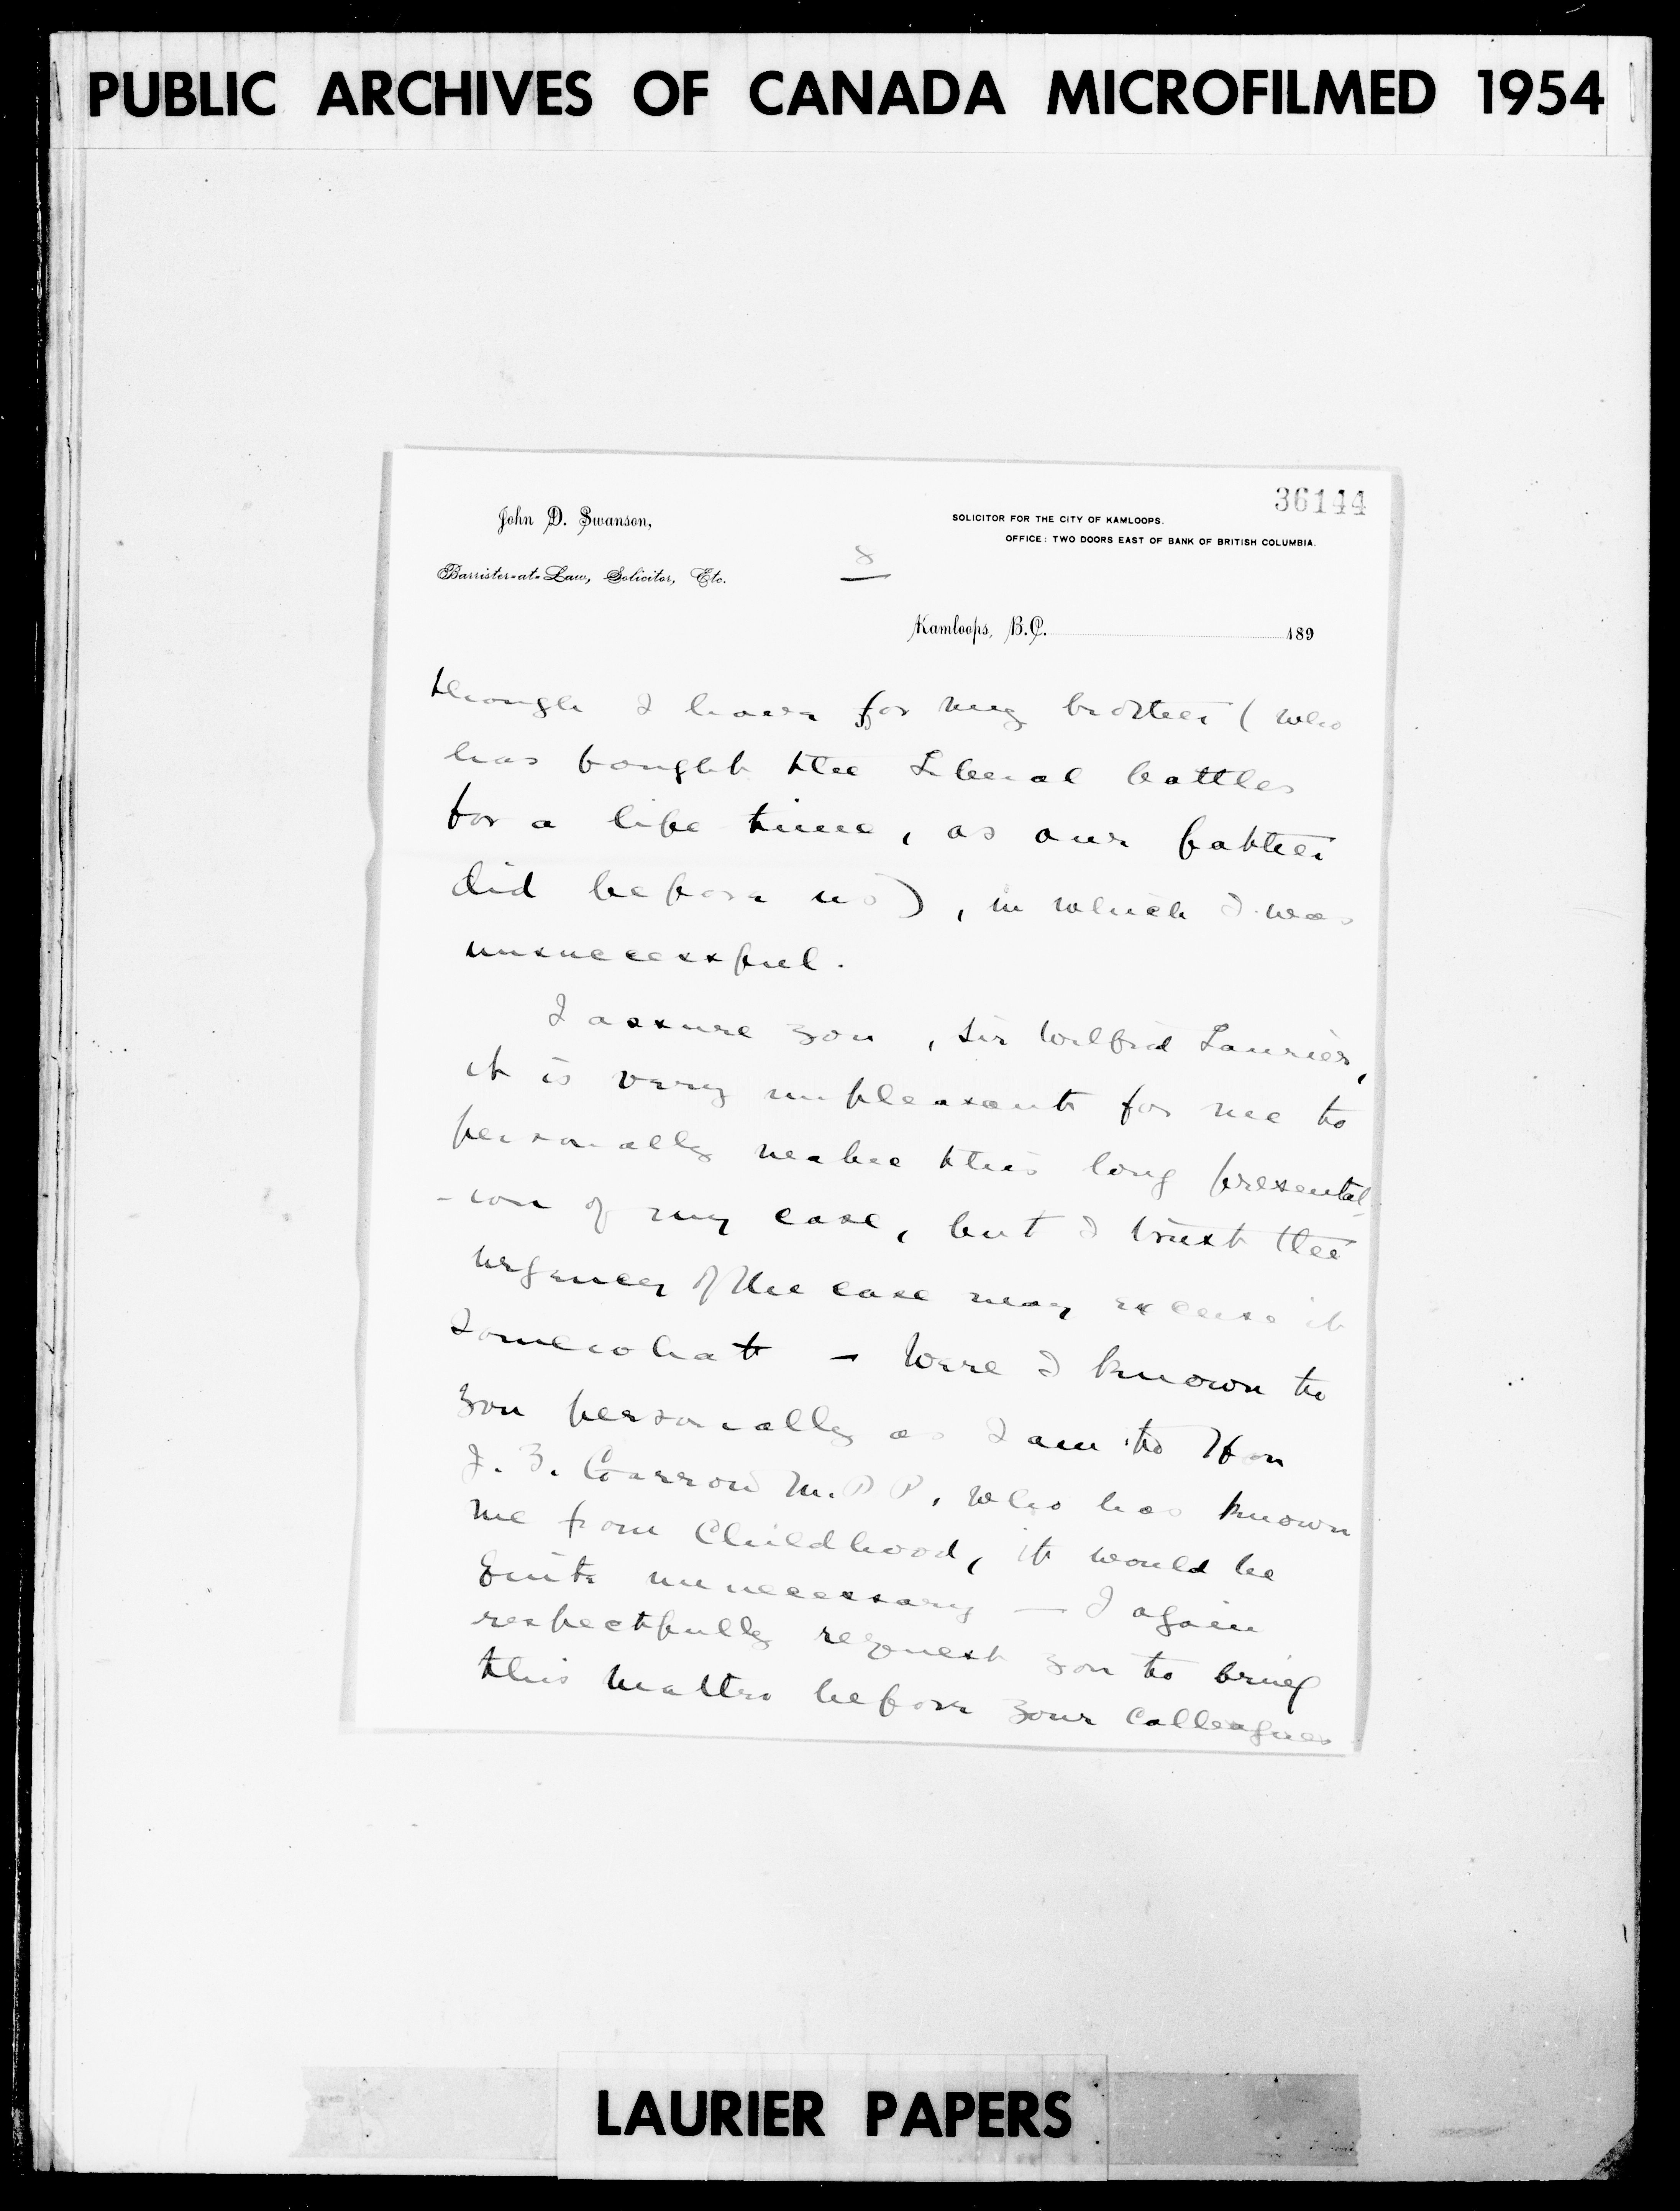 PUBLIC ARCHIVES OF CANADA MICROFILMED 1954
36144
John D. Swanson,
SOLICITOR FOR THE CITY OF KAMLOOPS.
OFFICE: TWO DOORS EAST OF BANK OF BRITISH COLUMBIA.
8
Barrister-at-Law, Solicitor, Etc.
Kamloops, B.C. 189
though I have for my brother (who
has fought the Liberal battles
for a life time, as our father
did before us), in which I was
unsuccessful.
I assure you, Sir Wilfrid Laurier,
it is very unpleasant for me to
personally make this long presentat
-ion of my case, but I trust the
urgency of the case may excuse it
somewhat – Were I known to
you personally as I am to Hon
J. T. Garrow M.P.P., who has known
me from Childhood, it would be
quite unnecessary — I again
respectfully request you to bring
this matter before your Colleagues
LAURIER PAPERS